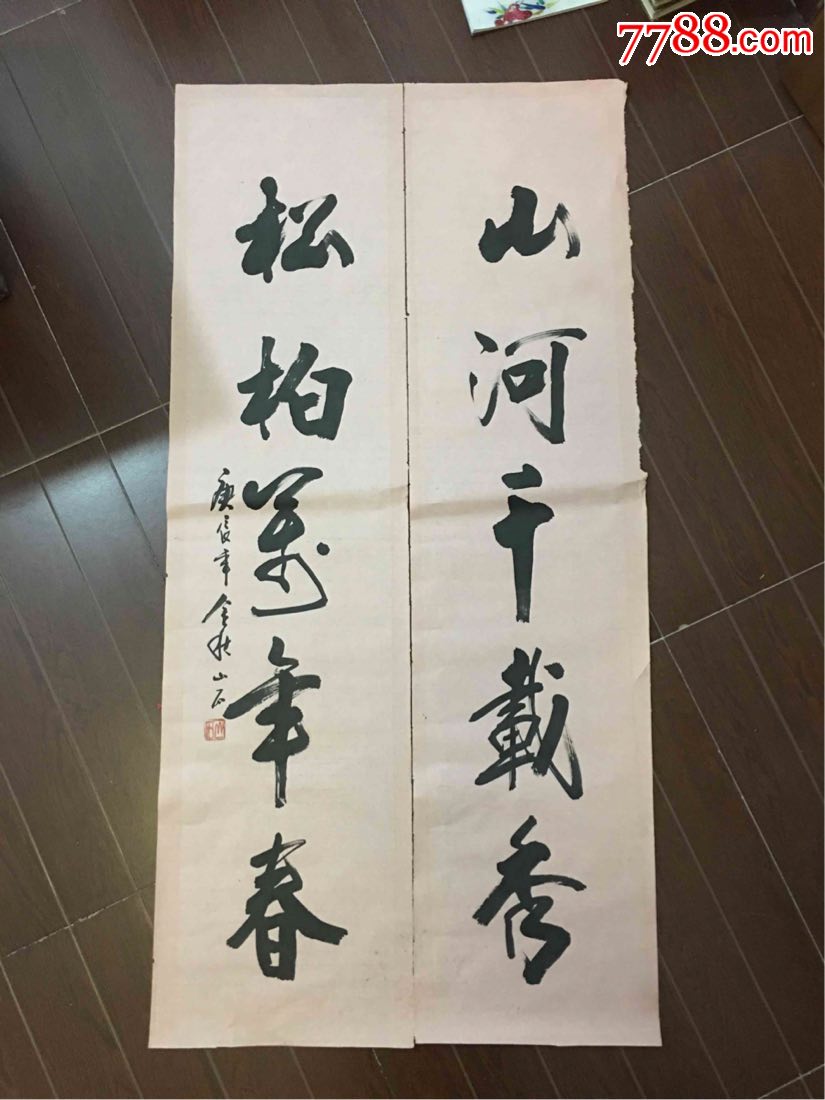 7788.com
山河千載秀
松柏萬年春
庚辰年金秋山石